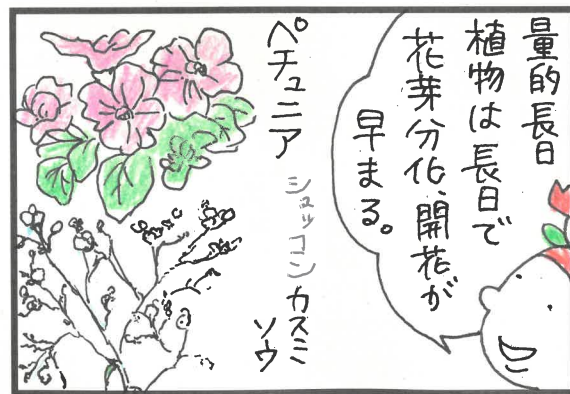 量的長日
植物は長日で
花芽分化、開花が
早まる。
ペチュニア
シュッコンカスミ
ソウ